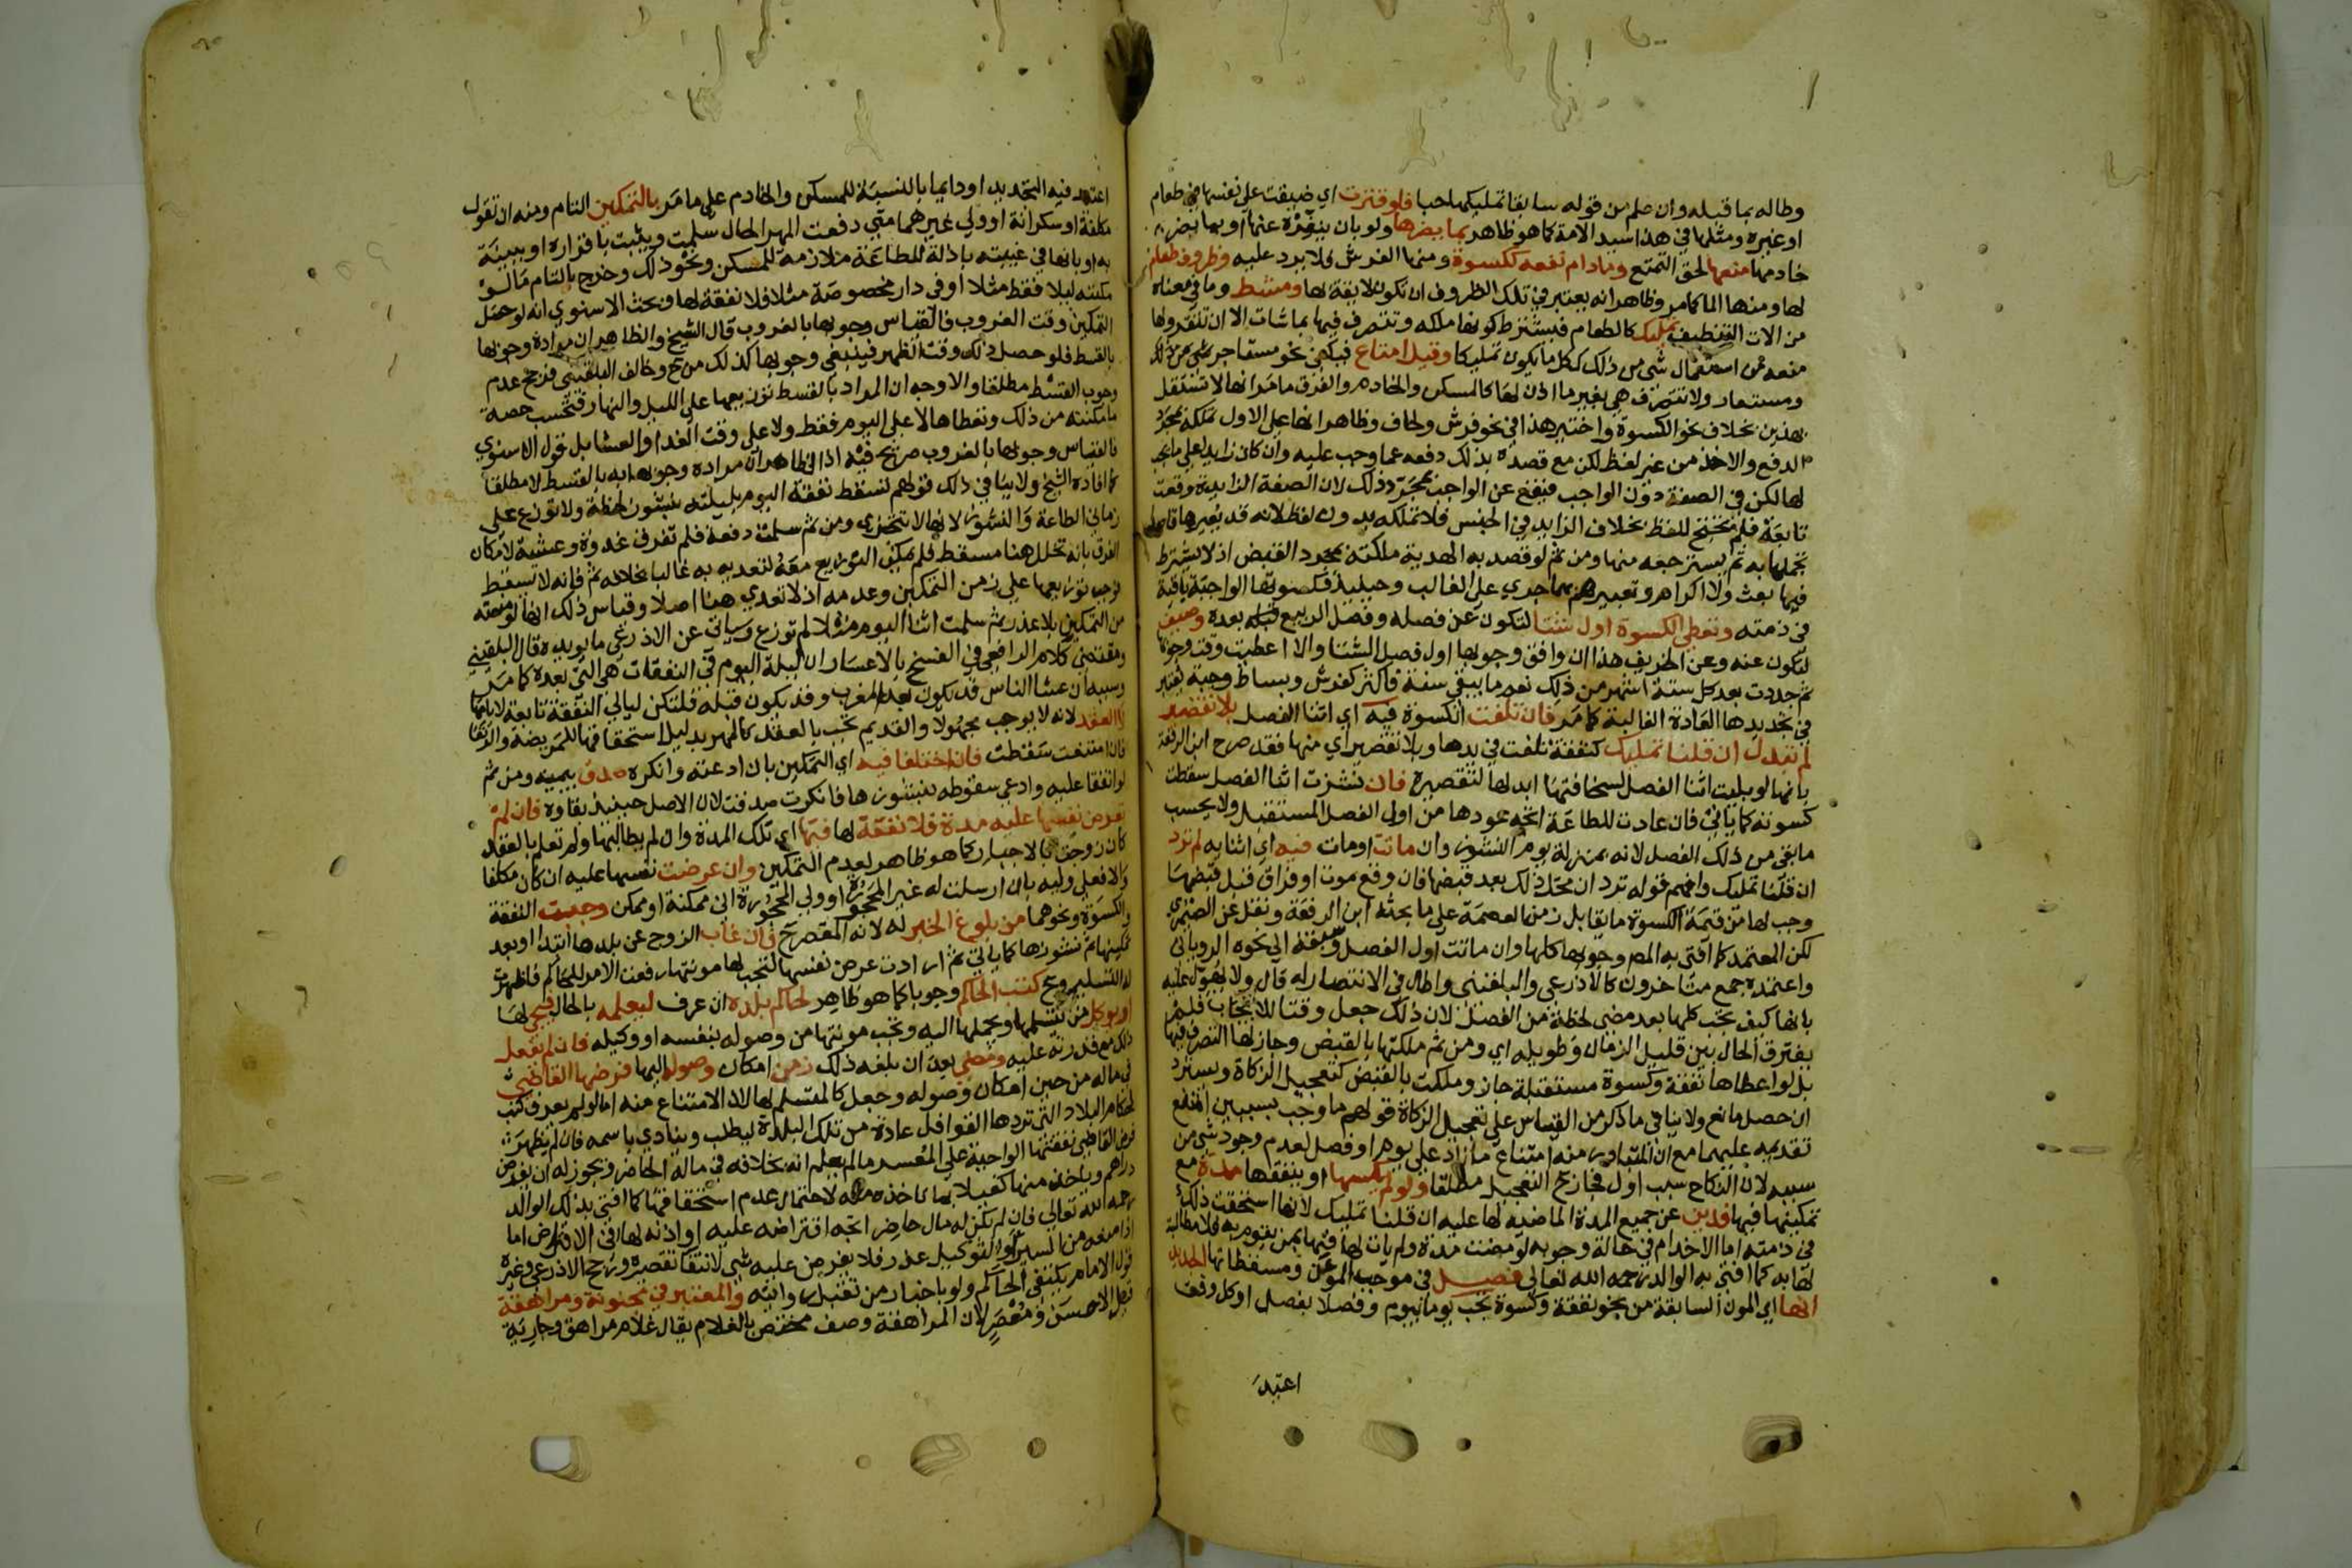 وطاله بما قبله وان علم من قوله سابقا تمليكها حبا فلو قترت اي ضيقت علي نفسها في طعام
او غيره ومثلها في هذا سيد الامة كما هو ظاهر بما يضرها ولو بان ينفره عنها او بما يضر
خادمها منعها لحق التمتع وما دام نفعه ككسوة ومنها الفرش فلا يرد عليه وظروف طعام
لها ومنها الماء كما مر وظاهر انه يعتبر في تلك الظروف ان تكون لايقة لها ومشط وما في معناه
من الات التنظيف تمليك كالطعام فيشترط كونها ملكه وتتصرف فيها بما شات الا ان تقتر ولها
منعه من استعمال شي من ذلك ككل ما يكون تمليكا وقيل امتاع فيكفي نحو مستاجر
ومستعار ولا تتصرف هي بغير ما اذن لها كالمسكن والخادم والفرق ما مر انها لا تستقل
بهذين بخلاف نحو الكسوة واختير هذا في نحو فرش ولحاف وظاهر انها علي الاول تملكه بمجرد
الدفع والاخذ من غير لفظ لكن مع قصده بذلك دفعه عما وجب عليه وان كان زايدا علي ما يجب
لها لكن في الصفة دون الواجب فيقع عن الواجب بمجرد ذلك لان الصفة الزايدة وقعت
تابعة فلم تحتج للفظ بخلاف الزايد في الجنس فلا تملكه بدون لفظ لانه قد يعيرها قاصدا
تجملها به ثم يسترجعه منها ومن ثم لو قصد به الهدية ملكته بمجرد القبض اذ لا يشترط
فيها بعث ولا اكرام وتعبيرهم بهما جري علي الغالب وحينيذ فكسوتها الواجبة باقية
في ذمته وتعطي الكسوة اول شتا لتكون عن فصله وفصل الربيع بعده وصيف
لتكون عنه وعن الخريف هذا ان وافق وجوبها اول فصل الشتا والا اعطيت وقت وجوبها
ثم جددت بعد كل ستة اشهر من ذلك نعم ما يبقي سنة فاكثر كفرش وبساط وجبة يعتبر
في تجديدها العادة الغالبة كما مر فان تلفت الكسوة فيه اي اثنا الفصل بلا تقصير
لم تبدل ان قلنا تمليك كنفقة تلفت في يدها وبلا تقصير اي منها فقد صرح ابن الرفعة
بانها لو بليت اثنا الفصل لسخافتها ابدلها لتقصيره فان نشزت اثنا الفصل سقطت
كسوته كما ياتي فان عادت للطاعة اتجه عودها من اول الفصل المستقبل ولا يحسب
ما بقي من ذلك الفصل لانه بمنزلة يوم النشوز وان ماتت او مات فيه اي اثنايه لم ترد
ان قلنا تمليك وافهم قوله ترد ان محل ذلك بعد قبضها فان وقع موت او فراق قبل قبضها
وجب لها من قيمة الكسوة ما يقابل زمن العصمة علي ما بحثه ابن الرفعة ونقل عن الصيمري
لكن المعتمد كما افتي به المصـ وجوبها كلها وان ماتت اول الفصل وسبقه الي نحوه الروياني
واعتمده جمع متاخرون كالاذرعي والبلقيني واطال في الانتصار له قال ولا يهول عليه
بانها كيف تجب كلها بعد مضي لحظة من الفصل لان ذلك جعل وقتا للايجاب فلم
يفترق الحال بين قليل الزمان وطويله اي ومن ثم ملكتها بالقبض وجاز لها التصرف فيها
بل لو اعطاها نفقة وكسوة مستقبلة جاز وملكت بالقبض كتعجيل الزكاة ويسترد
ان حصل مانع ولا ينافي ما ذكر من القياس علي تعجيل الزكاة قولهم ما وجب بسببين امتنع
تقديمه عليهما مع ان المتبادر منه امتناع ما زاد علي يوم او فصل لعدم وجود شي من
سببه لان النكاح سبب اول فجاز ح التعجيل مطلقا ولو لم يكسها او ينفقها مدة مع
تمكينها فيها فدين عن جميع المدة الماضيه لها عليه ان قلنا تمليك لانها استحقت ذلك
في ذمته اما الاخدام في حالة وجوبه لو مضت مدة ولم يات لها فيها بمن يقوم به فلا مطالبة
لها به كما افتي به الوالد رحمه الله تعالي فصـــل في موجب المؤن ومسقطاتها الجديد
انها اي المون السابقة من نحو نفقة وكسوة تجب يوما بيوم وفصلا بفصل او كل وقت
اعتيد
اعتيد فيه التجديد او دايما بالنسبة للمسكن والخادم علي ما مر بالتمكين التام ومنه ان تقول
مكلفة او سكرانة او ولي غيرهما متي دفعت المهر الحال سلمت ويثبت باقراره او ببينة
به او بانها في غيبته باذلة للطاعة ملازمة للمسكن ونحو ذلك وخرج بالتام ما لــو
مكنته ليلا فقط مثلا او في دار مخصوصة مثلا فلا نفقة لها وبحث الاسنوي انه لو حصل
التمكين وقت الغروب فالقياس وجوبها بالغروب قال الشيخ والظاهر ان مراده وجوبها
بالقسط فلو حصل ذلك وقت الظهر فينبغي وجوبها كذلك من ح وخالف البلقيني فرجح عدم
وجوب القسط مطلقا والاوجه ان المراد بالقسط توزيعها علي الليل والنهار فتحسب حصة
ما مكنته من ذلك وتعطاها لا علي اليوم فقط ولا علي وقت الغدا والعشا بل قول الاسنوي
فالقياس وجوبها بالغروب صريح فيه اذ الظاهر ان مراده وجوبها به بالقسط لا مطلقا
كما افاده الشيخ ولا ينافي ذلك قولهم تسقط نفقة اليوم بليلته بنشوز لحظة ولا توزع علي
زماني الطاعة والنشوز لانها لا تتجزي ومن ثم سلمت دفعة فلم تفرق غدوة وعشية لامكان
الفرق بانه تخلل هنا مسقط فلم يمكن التوزيع معه لتعديه به غالبا بخلافه ثم فانه لا تسقط
فوجب توزيعها علي زمن التمكين وعدمه اذ لا تعدي هنا اصلا وقياس ذلك انها لو منعته
من التمكين بلا عذر ثم سلمت اثنا اليوم مثلا لم توزع وسياتي عن الاذرعي ما يويده قال البلقيني
ومقتضي كلام الرافعي في الفسخ بالاعسار ان ليلة اليوم في النفقات هي التي بعده كما مر
وسببه ان عشا الناس قد يكون بعد المغرب وقد يكون قبله فلتكن ليالي النفقة تابعة لايامها
لا العقد لانه لا يوجب مجهولا والقديم تجب بالعقد كالمهر بدليل استحقاقها للمريضة والرتقا
فان امتنعت سقطت فان اختلفا فيه اي التمكين بان ادعته وانكره صدق بيمينه ومن ثم
لو اتفقا عليه وادعي سقوطه بنشوزها فانكرت صدقت لان الاصل حينيذ بقاوه فان لم
تعرض نفسها عليه مدة فلا نفقة لها فيها اي تلك المدة وان لم يطالبها ولم تعلم بالعقد
كان زوجت بالاجبار كما هو ظاهر لعدم التمكين وان عرضت نفسها عليه ان كان مكلفا
والا فعلي وليه بان ارسلت له غير المحجورة او ولي المحجورة اني ممكنة او ممكن وجبت النفقة
والكسوة ونحوهما من بلوغ الخبر له لانه المقصر ح فان غاب الزوج عن بلدها ابتدا او بعد
تمكينها ثم نشوزها كما ياتي ثم ارادت عرض نفسها لتجب لها مونتها رفعت الامر للحاكم فاظهرت
له التسليم وح كتب الحاكم وجوبا كما هو ظاهر لحاكم بلده ان عرف ليعلمه بالحال فيجي لها
او يوكل من يتسلمها ويحملها اليه وتجب مونتها من وصوله بنفسه او وكيله فان لم يفعل
ذلك مع قدرته عليه ومضي بعد ان بلغه ذلك زمن امكان وصوله اليها فرضها القاضي
في ماله من حين امكان وصوله وجعل كالمتسلم لها لان الامتناع منه اما لو لم يعرف كتب
لحكام البلاد التي تردها القوافل عادة من تلك البلدة ليطلب وينادي باسمه فان لم يظهر
فرض القاضي نفقتها الواجبة علي المعسر ما لم يعلم انه بخلافه في ماله الحاضر ويجوز له ان يفرض
دراهم وياخذ منها كفيلا بما تاخذه لاحتمال عدم استحقاقها كما افتي بذلك الوالد
رحمه الله تعالي فان لم يكن له مال حاضر اتجه اقتراضه عليه او اذنه لها في الاقتراض اما
اذا منعه من السير او التوكيل عذر فلا يفرض عليه شي لانتفا تقصيره ورجح الاذرعي وغيره
قول الامام يكتفي الحاكم ولو باخبار من تقبل روايته والمعتبر في مجنونة ومراهقة
قيل الاحسن ومعصر لان المراهقة وصف مختص بالغلام يقال غلام مراهق وجارية